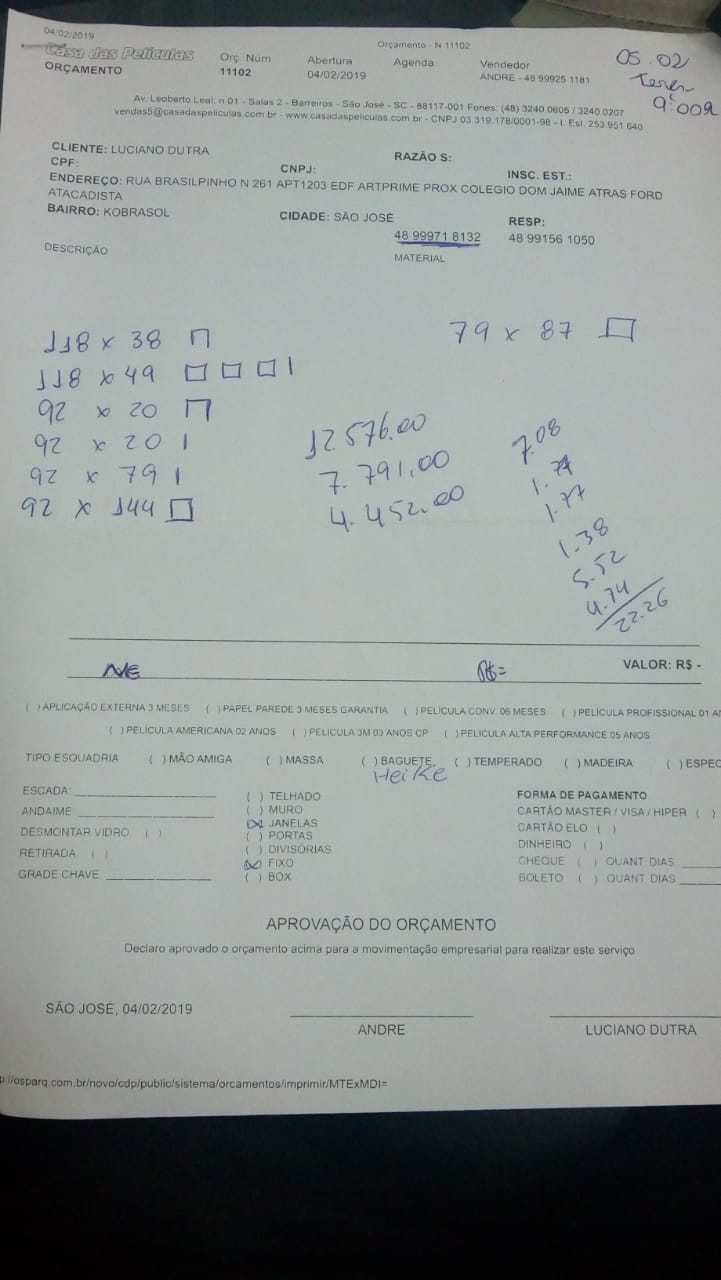 04/02/2019
Orçamento - N 11102
Casa das Películas
ORÇAMENTO
Orç. Núm
11102
Abertura
04/02/2019
Agenda
Vendedor
ANDRE - 48 99925 1181
05.02
9:00
Av. Leoberto Leal, n 01 - Salas 2 - Barreiros - São José - SC - 88117-001 Fones: (48) 3240.0605 / 3240.0207
vendas5@casadaspeliculas.com.br - www.casadaspeliculas.com.br - CNPJ 03.319.178/0001-98 - I. Est. 253.951.640
CLIENTE: LUCIANO DUTRA
RAZÃO S:
CPF:
CNPJ:
INSC. EST.:
ENDEREÇO: RUA BRASILPINHO N 261 APT1203 EDF ARTPRIME PROX COLEGIO DOM JAIME ATRAS FORD
ATACADISTA
BAIRRO: KOBRASOL
CIDADE: SÃO JOSÉ
RESP:
48 99971 8132
48 99156 1050
DESCRIÇÃO
MATERIAL
118 x 38
79 x 87
118 x 49
92 x 20
92 x 20
92 x 79
92 x 144
12.576.00
7.791,00
4.452.00
7.08
1.77
1.38
5.52
4.74
22.26
VALOR: R$ -
( ) APLICAÇÃO EXTERNA 3 MESES ( ) PAPEL PAREDE 3 MESES GARANTIA ( ) PELÍCULA CONV. 06 MESES ( ) PELÍCULA PROFISSIONAL 01 AN
( ) PELÍCULA AMERICANA 02 ANOS ( ) PELICULA 3M 03 ANOS CP ( ) PELICULA ALTA PERFORMANCE 05 ANOS
TIPO ESQUADRIA ( ) MÃO AMIGA ( ) MASSA ( ) BAGUETE ( ) TEMPERADO ( ) MADEIRA ( ) ESPEC
Heike
ESCADA:
ANDAIME:
DESMONTAR VIDRO ( )
RETIRADA ( )
GRADE CHAVE:
( ) TELHADO
( ) MURO
(x) JANELAS
( ) PORTAS
( ) DIVISÓRIAS
(x) FIXO
( ) BOX
FORMA DE PAGAMENTO
CARTÃO MASTER / VISA / HIPER ( )
CARTÃO ELO ( )
DINHEIRO ( )
CHEQUE ( ) QUANT. DIAS
BOLETO ( ) QUANT. DIAS
APROVAÇÃO DO ORÇAMENTO
Declaro aprovado o orçamento acima para a movimentação empresarial para realizar este serviço
SÃO JOSÉ, 04/02/2019
ANDRE
LUCIANO DUTRA
p://osparq.com.br/novo/cdp/public/sistema/orcamentos/imprimir/MTExMDI=